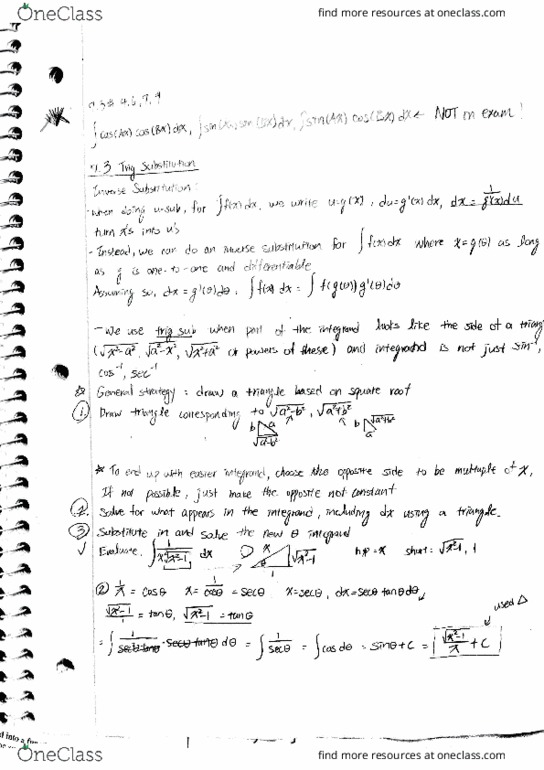 OneClass
find more resources at oneclass.com
7.3# 4,6,7,9
∫cos(Ax)cos(Bx)dx, ∫sin(Ax)sin(Bx)dx, ∫sin(Ax)cos(Bx)dx ← NOT on exam!
7.3 Trig Substitution
Inverse Substitution:
-When doing u-sub, for ∫f(x)dx, we write u=g(x), du=g'(x)dx, dx=1/g'(x)du
turn x's into u's
-Instead, we can do an inverse substitution for ∫f(x)dx where x=g(θ) as long
as g is one-to-one and differentiable
Assuming so, dx=g'(θ)dθ, ∫f(x)dx=∫f(g(θ))g'(θ)dθ
-We use trig sub when part of the integrand looks like the side of a triang
(√x²-a², √a²-x², √x²+a² or powers of these) and integrand is not just sin⁻¹,
cos⁻¹, sec⁻¹
General strategy: draw a triangle based on square root
① Draw triangle corresponding to √a²-b², √a²+b²
b a √a²-b² b √a²+b² a
* To end up with easier integrand, choose the opposite side to be multiple of x,
If not possible, just make the opposite not constant
② Solve for what appears in the integrand, including dx using a triangle.
③ Substitute in and solve the new θ integrand
✓ Evaluate. ∫1/x√x²-1 dx x √x²-1 θ 1 hyp=x short: √x²-1, 1
② 1/x = cosθ x=1/cosθ=secθ x=secθ, dx=secθtanθdθ
√x²-1/1 = tanθ, √x²-1=tanθ
used Δ
=∫1/secθtanθ·secθtanθdθ = ∫1/secθ = ∫cosdθ = sinθ+C = √x²-1/x + C
OneClass
find more resources at oneclass.com